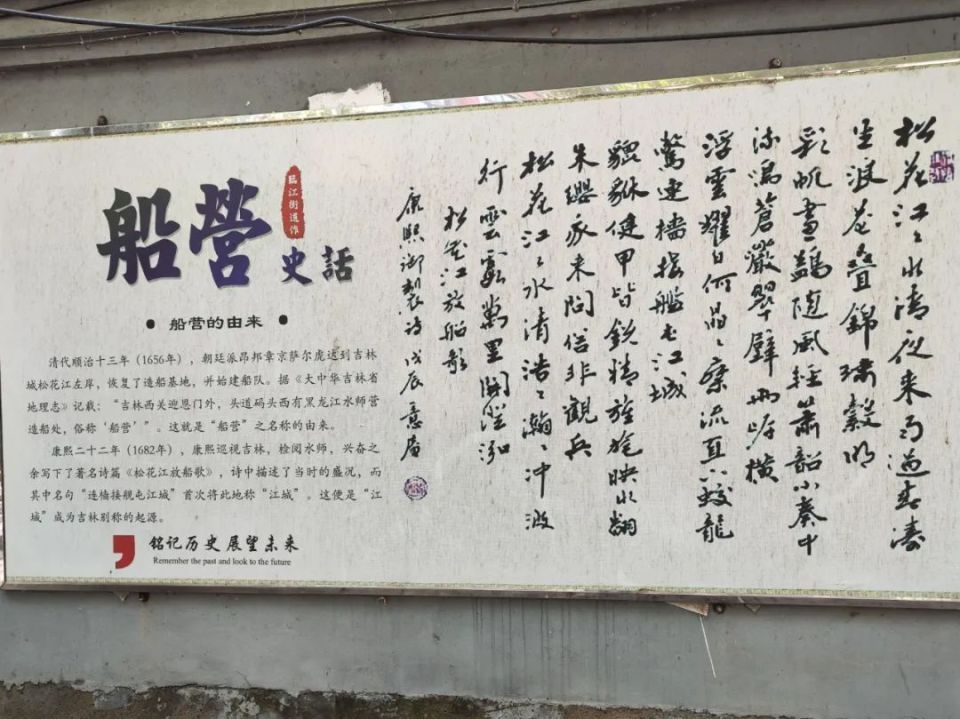 船營
臨江街道作
史話
船营的由来
清代顺治十三年（1656年），朝廷派昂邦章京萨尔虎达到吉林
城松花江左岸，恢复了造船基地，并始建船队。据《大中华吉林省
地理志》记载：“吉林西关迎恩门外，头道码头西有黑龙江水师营
造船处，俗称‘船营’”。这就是“船营”之名称的由来。
康熙二十二年（1682年），康熙巡视吉林，检阅水师，兴奋之
余写下了著名诗篇《松花江放船歌》，诗中描述了当时的盛况，而
其中名句“连樯接舰屯江城”首次将此地称“江城”。这便是“江
城”成为吉林别称的起源。
铭记历史 展望未来
Remember the past and look to the future
松花江〻水清夜来雨过春涛
生浪花疊錦繡縠明
彩帆畫鷁随風輕簫韶小奏中
流鳴蒼巖翠壁兩岸横
浮雲耀日何晶〻乘流直下蛟龍
驚連檣接艦屯江城
貔貅健甲皆鋭精旌旄映水翻
朱纓我来問俗非觀兵
松花江〻水清浩〻瀚〻冲波
行雲霞萬里開澄泓
松花江放船歌
康熙御製诗戊辰意庵